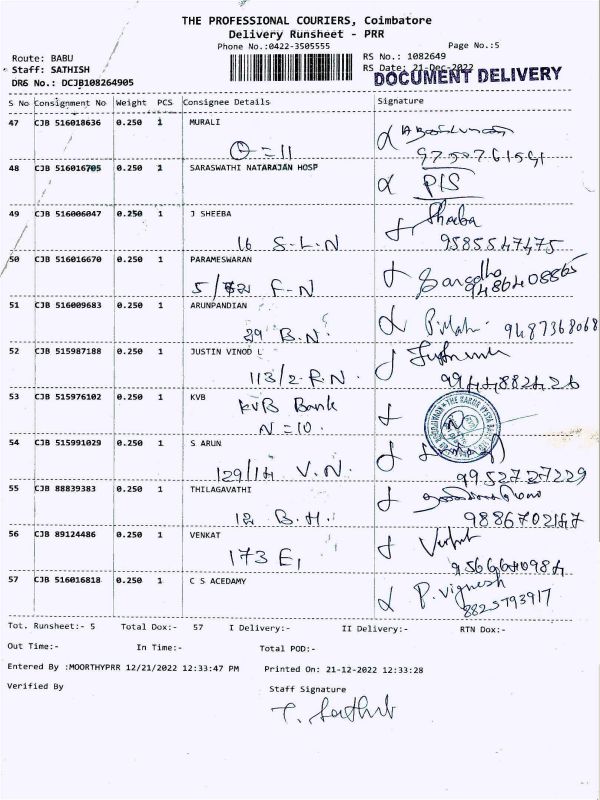 THE PROFESSIONAL COURIERS, Coimbatore
Delivery Runsheet - PRR
Phone No.:0422-3505555 Page No.:5
Route: BABU RS No.: 1082649
Staff: SATHISH RS Date: 21-Dec-2022
DOCUMENT DELIVERY
DR6 No.: DCJB108264905
S No Consignment No Weight PCS Consignee Details Signature
47 CJB 516018636 0.250 1 MURALI
= 11
48 CJB 516016705 0.250 1 SARASWATHI NATARAJAN HOSP
P/S
49 CJB 516006047 0.250 1 J SHEEBA Sheeba
16 S-L-N 9585547475
50 CJB 516016670 0.250 1 PARAMESWARAN
F-N 9486408865
51 CJB 516009683 0.250 1 ARUNPANDIAN
39 B.N. 9487368068
52 CJB 515987188 0.250 1 JUSTIN VINOD L
113/2 R.N. 9944882426
53 CJB 515976102 0.250 1 KVB
KVB Bank
N=10.
54 CJB 515991029 0.250 1 S ARUN
129/14 V.N. 9952727229
55 CJB 88839383 0.250 1 THILAGAVATHI
12 B.H. 9886702147
56 CJB 89124486 0.250 1 VENKAT
173 E1 9566640984
57 CJB 516016818 0.250 1 C S ACEDAMY P. Vignesh
8825793917
Tot. Runsheet:- 5 Total Dox:- 57 I Delivery:- II Delivery:- RTN Dox:-
Out Time:- In Time:- Total POD:-
Entered By :MOORTHYPRR 12/21/2022 12:33:47 PM Printed On: 21-12-2022 12:33:28
Verified By Staff Signature
T. Sathish